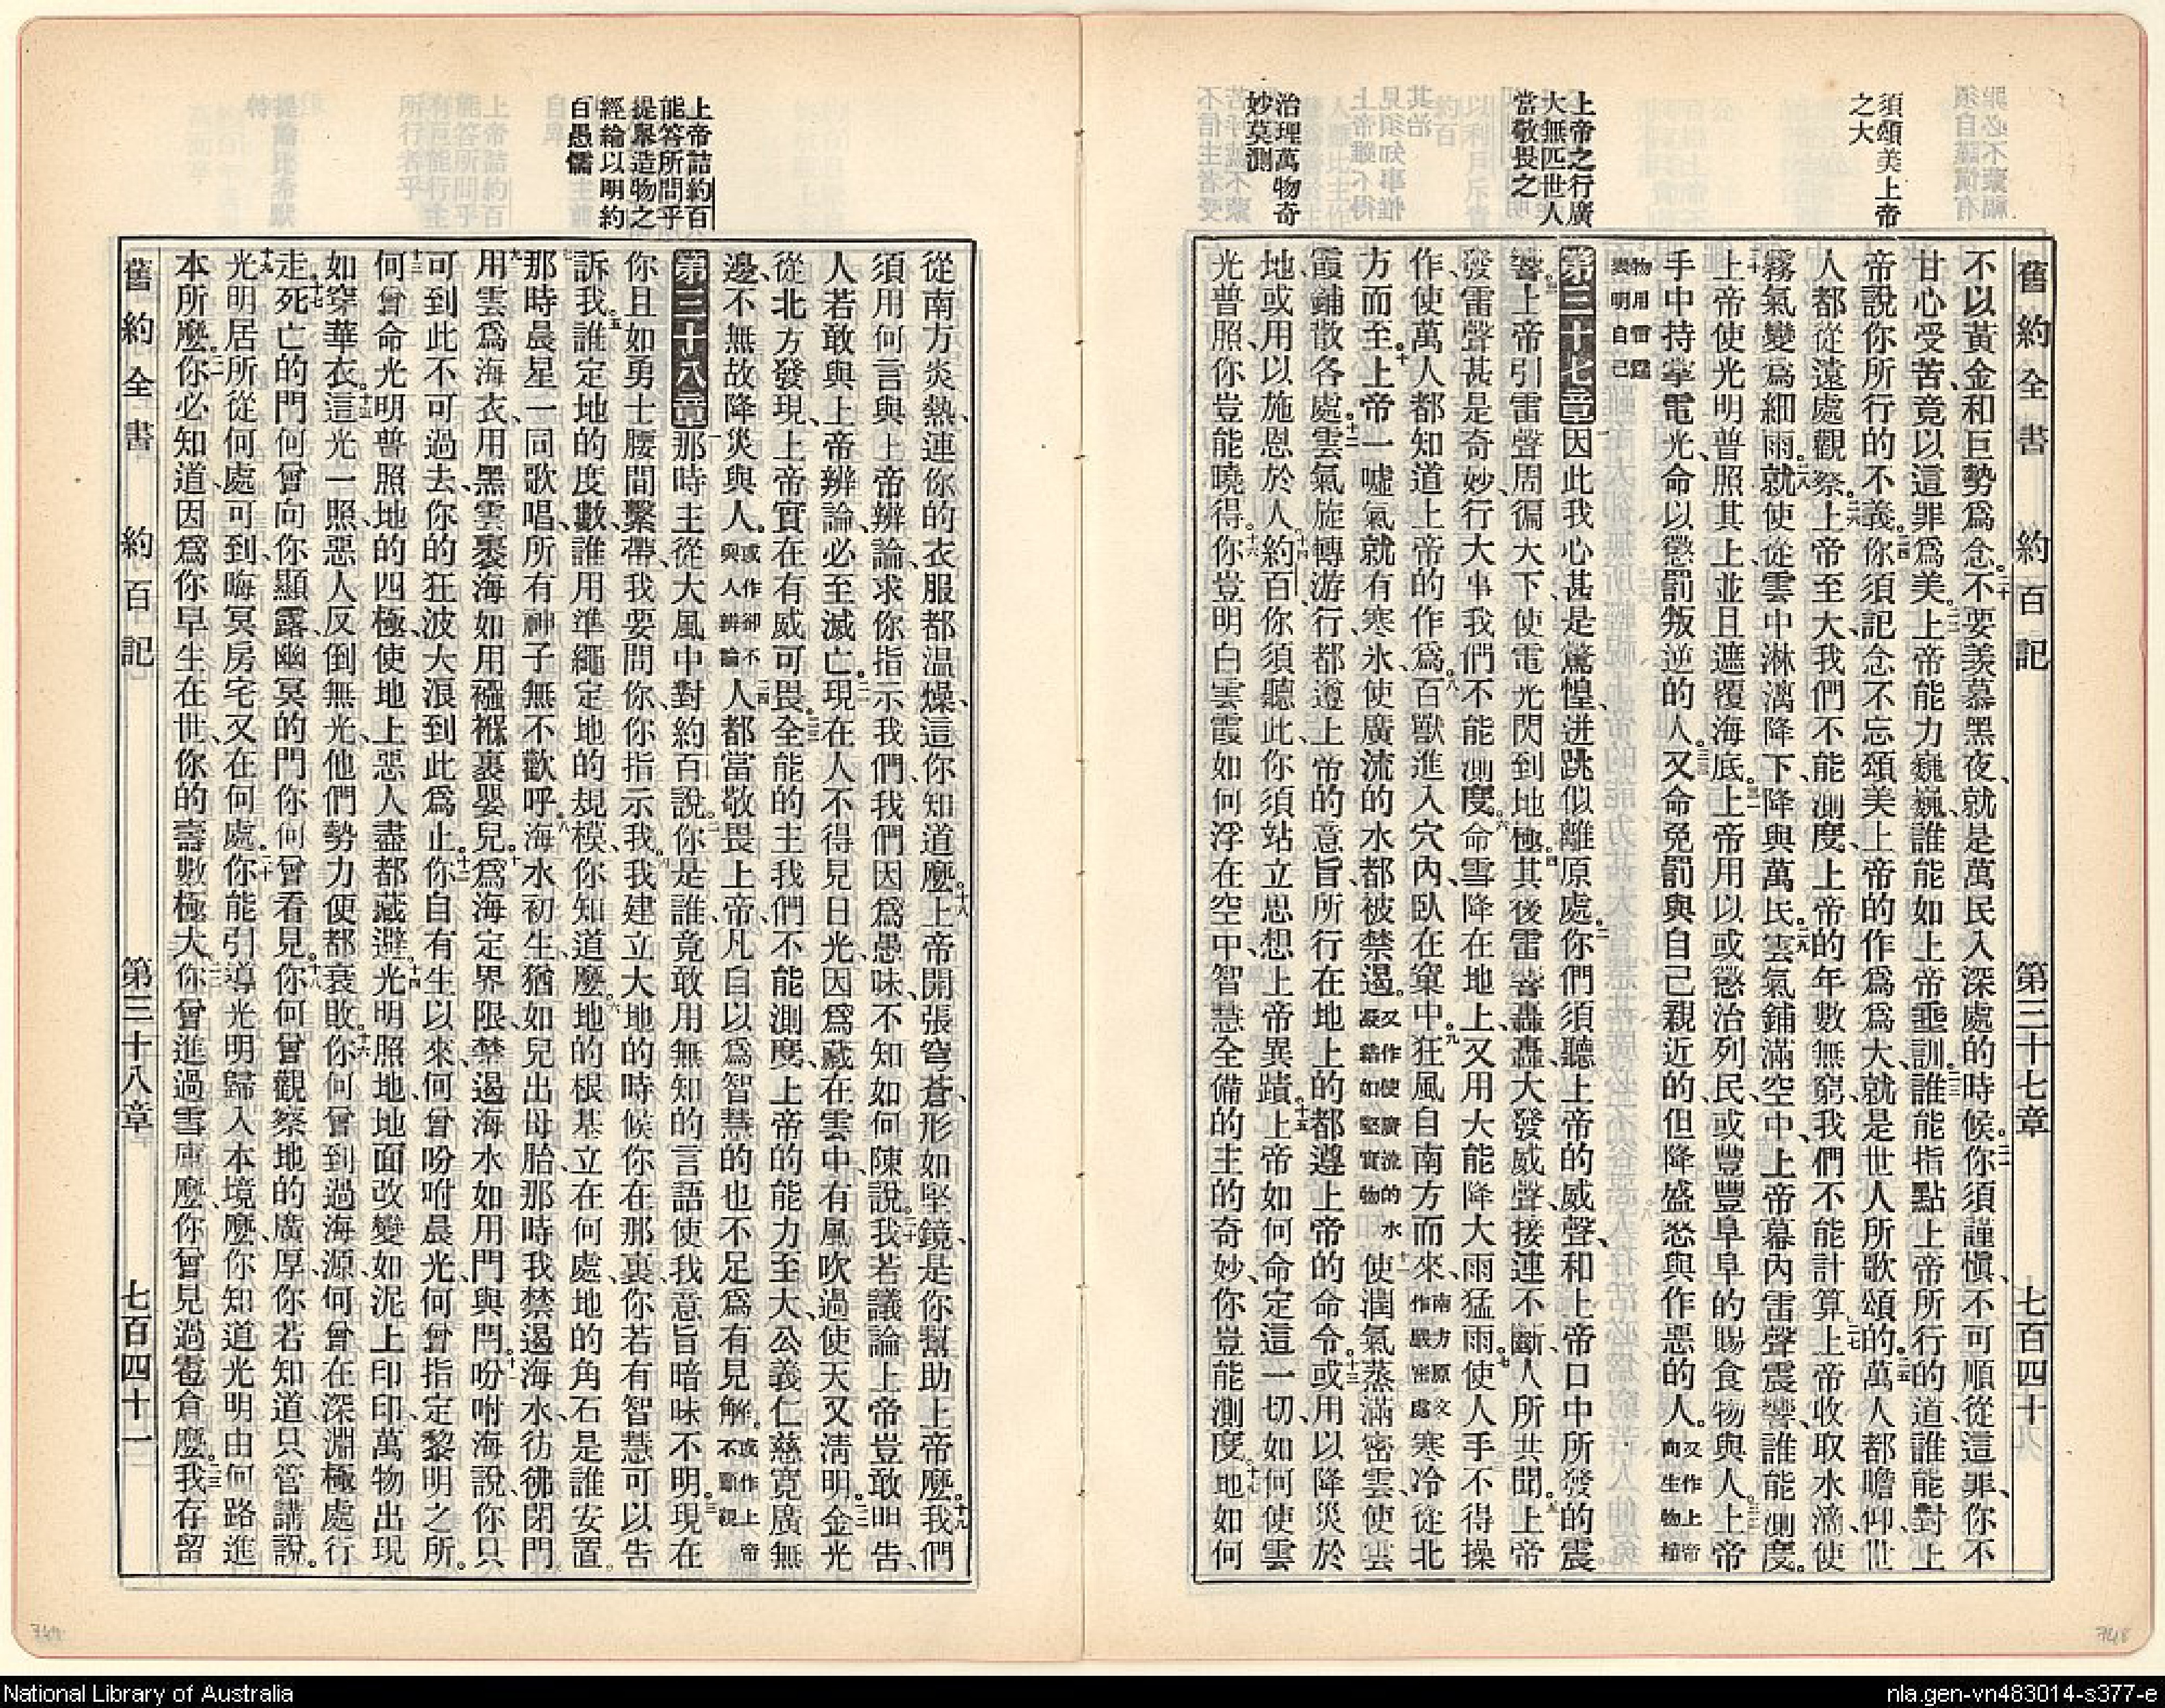 須頌美上帝
之大
上帝之行廣
大無匹世人
當敬畏之
治理萬物奇
妙莫測
舊約全書 約百記 第三十七章 七百四十
不以黃金和巨勢爲念。二十不要羨慕黑夜、就是萬民入深處的時候。二一你須謹愼、不可順從這罪、你不
甘心受苦、竟以這罪爲美。二二上帝能力巍巍、誰能如上帝垂訓。二三誰能指點上帝所行的道、誰能對上
帝說你所行的不義。二四你須記念不忘頌美上帝的作爲爲大、就是世人所歌頌的。二五萬人都瞻仰、世
人都從遠處觀察。二六上帝至大、我們不能測度、上帝的年數無窮、我們不能計算。二七上帝收取水滴、使
霧氣變爲細雨。二八就使從雲中淋漓降下、降與萬民。二九雲氣鋪滿空中、上帝幕內雷聲震響、誰能測度。
三十上帝使光明普照其上、並且遮覆海底。三一上帝用以或懲治列民、或豐豐阜阜的賜食物與人。三二上帝
手中持掌電光、命以懲罰叛逆的人。三三又命免罰與自己親近的、但降盛怒與作惡的人。又作上帝向生物
物用雷霆表明自己
第三十七章 一因此我心甚是驚惶、迸跳似離原處。二你們須聽上帝的威聲、和上帝口中所發的震
響。三上帝引雷聲周徧天下、使電光閃到地極。四其後雷聲轟轟、大發威聲、接連不斷、人所共聞。五上帝
發雷聲甚是奇妙、行大事我們不能測度。六命雪降在地上、又用大能降大雨猛雨。七使人手不得操
作、使萬人都知道上帝的作爲。八百獸進入穴內、臥在窠中。九狂風自南方而來、南方原文作嚴密處寒冷從北
方而至。十上帝一噓氣就有寒氷、使廣流的水都被禁遏。又作使廣流的水凝結如堅實物十一使潤氣蒸滿密雲、使雲
霞鋪散各處。十二雲氣旋轉游行、都遵上帝的意旨、所行在地上的都遵上帝的命令。十三或用以降災於
地、或用以施恩於人。十四約百、你須聽此、你須站立思想上帝異蹟。十五上帝如何命定這一切、如何使雲
光普照、你豈能曉得。十六你豈明白雲霞如何浮在空中、智慧全備的主的奇妙、你豈能測度。十七地如何
上帝詰約百
能答所問乎
提舉造物之
經綸以明約
百愚懦
從南方炎熱、連你的衣服都温燥、這你知道麼。十八上帝開張穹蒼、形如堅鏡、是你幫助上帝麼。十九我們
須用何言與上帝辨論、求你指示我們、我們因爲愚昧、不知如何陳說。二十我若議論上帝、豈敢明告、
人若敢與上帝辨論、必至滅亡。二一現在人不得見日光、因爲藏在雲中、有風吹過使天又淸明。二二金光
從北方發現、上帝實在有威可畏。二三全能的主、我們不能測度、上帝的能力至大、公義仁慈寬廣無
邊、不無故降災與人。或作卻不與人辨論二四人都當敬畏上帝、凡自以爲智慧的也不足爲有見解。或作上帝不顧視
第三十八章 一那時主從大風中對約百說。二你是誰、竟敢用無知的言語使我意旨暗昧不明。三現在
你且如勇士腰間繫帶、我要問你、你指示我。四我建立大地的時候、你在那裏、你若有智慧可以告
訴我。五誰定地的度數、誰用準繩定地的規模、你知道麼。六地的根基立在何處、地的角石是誰安置。
七那時晨星一同歌唱、所有神子無不歡呼。八海水初生、猶如兒出母胎、那時我禁遏海水彷彿閉門。
九用雲爲海衣、用黑雲裹海如用襁褓裹嬰兒。十爲海定界限、禁遏海水如用門與閂。十一吩咐海說、你只
可到此不可過去、你的狂波大浪到此爲止。十二你自有生以來、何曾吩咐晨光、何曾指定黎明之所。
十三何曾命光明普照地的四極、使地上惡人盡都藏避。十四光明照地、地面改變如泥上印印、萬物出現
如穿華衣。十五這光一照、惡人反倒無光、他們勢力便都衰敗。十六你何曾到過海源、何曾在深淵極處行
走。十七死亡的門何曾向你顯露、幽冥的門你何曾看見。十八你何曾觀察地的廣厚、你若知道只管講說。
十九光明居所從何處可到、晦冥房宅又在何處。二十你能引導光明歸入本境麼、你知道光明由何路進
本所麼。二一你必知道、因爲你早生在世、你的壽數極大。二二你曾進過雪庫麼、你曾見過雹倉麼。二三我存留
舊約全書 約百記 第三十八章 七百四十一
749
748
National Library of Australia
nla.gen-vn483014-s377-e